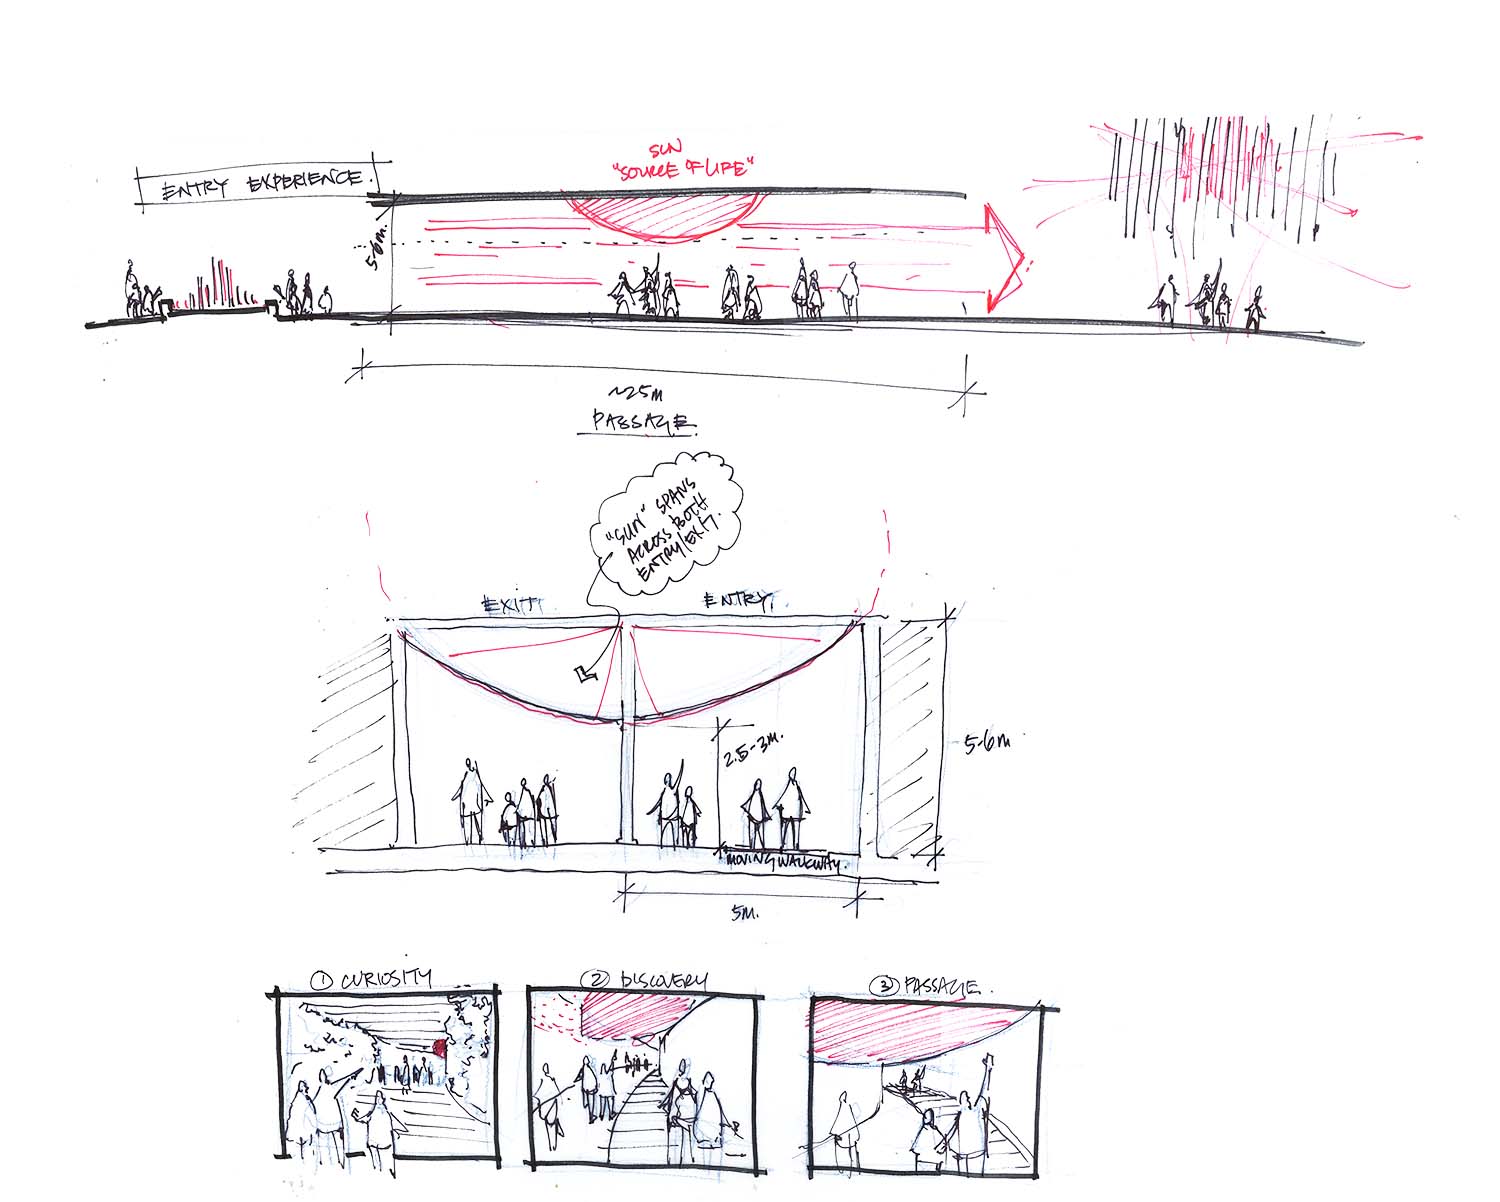 ENTRY EXPERIENCE.
SUN
"SOURCE OF LIFE"
5-6m.
~25m
PASSAGE.
"SUN" SPANS
ACROSS BOTH
ENTRY/EXIT.
EXIT
ENTRY.
2.5-3m.
5-6m
MOVING WALKWAY.
5m.
① CURIOSITY
② DISCOVERY
③ PASSAGE.